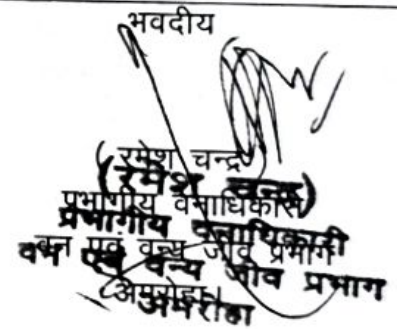 भवदीय
( रमेश चन्द्र )
(रमेश चन्द्र)
प्रभागीय वनाधिकारी
प्रभागीय वनाधिकारी
वन एवं वन्य जीव प्रभाग
वन एवं वन्य जीव प्रभाग
अमरोहा।
अमरोहा